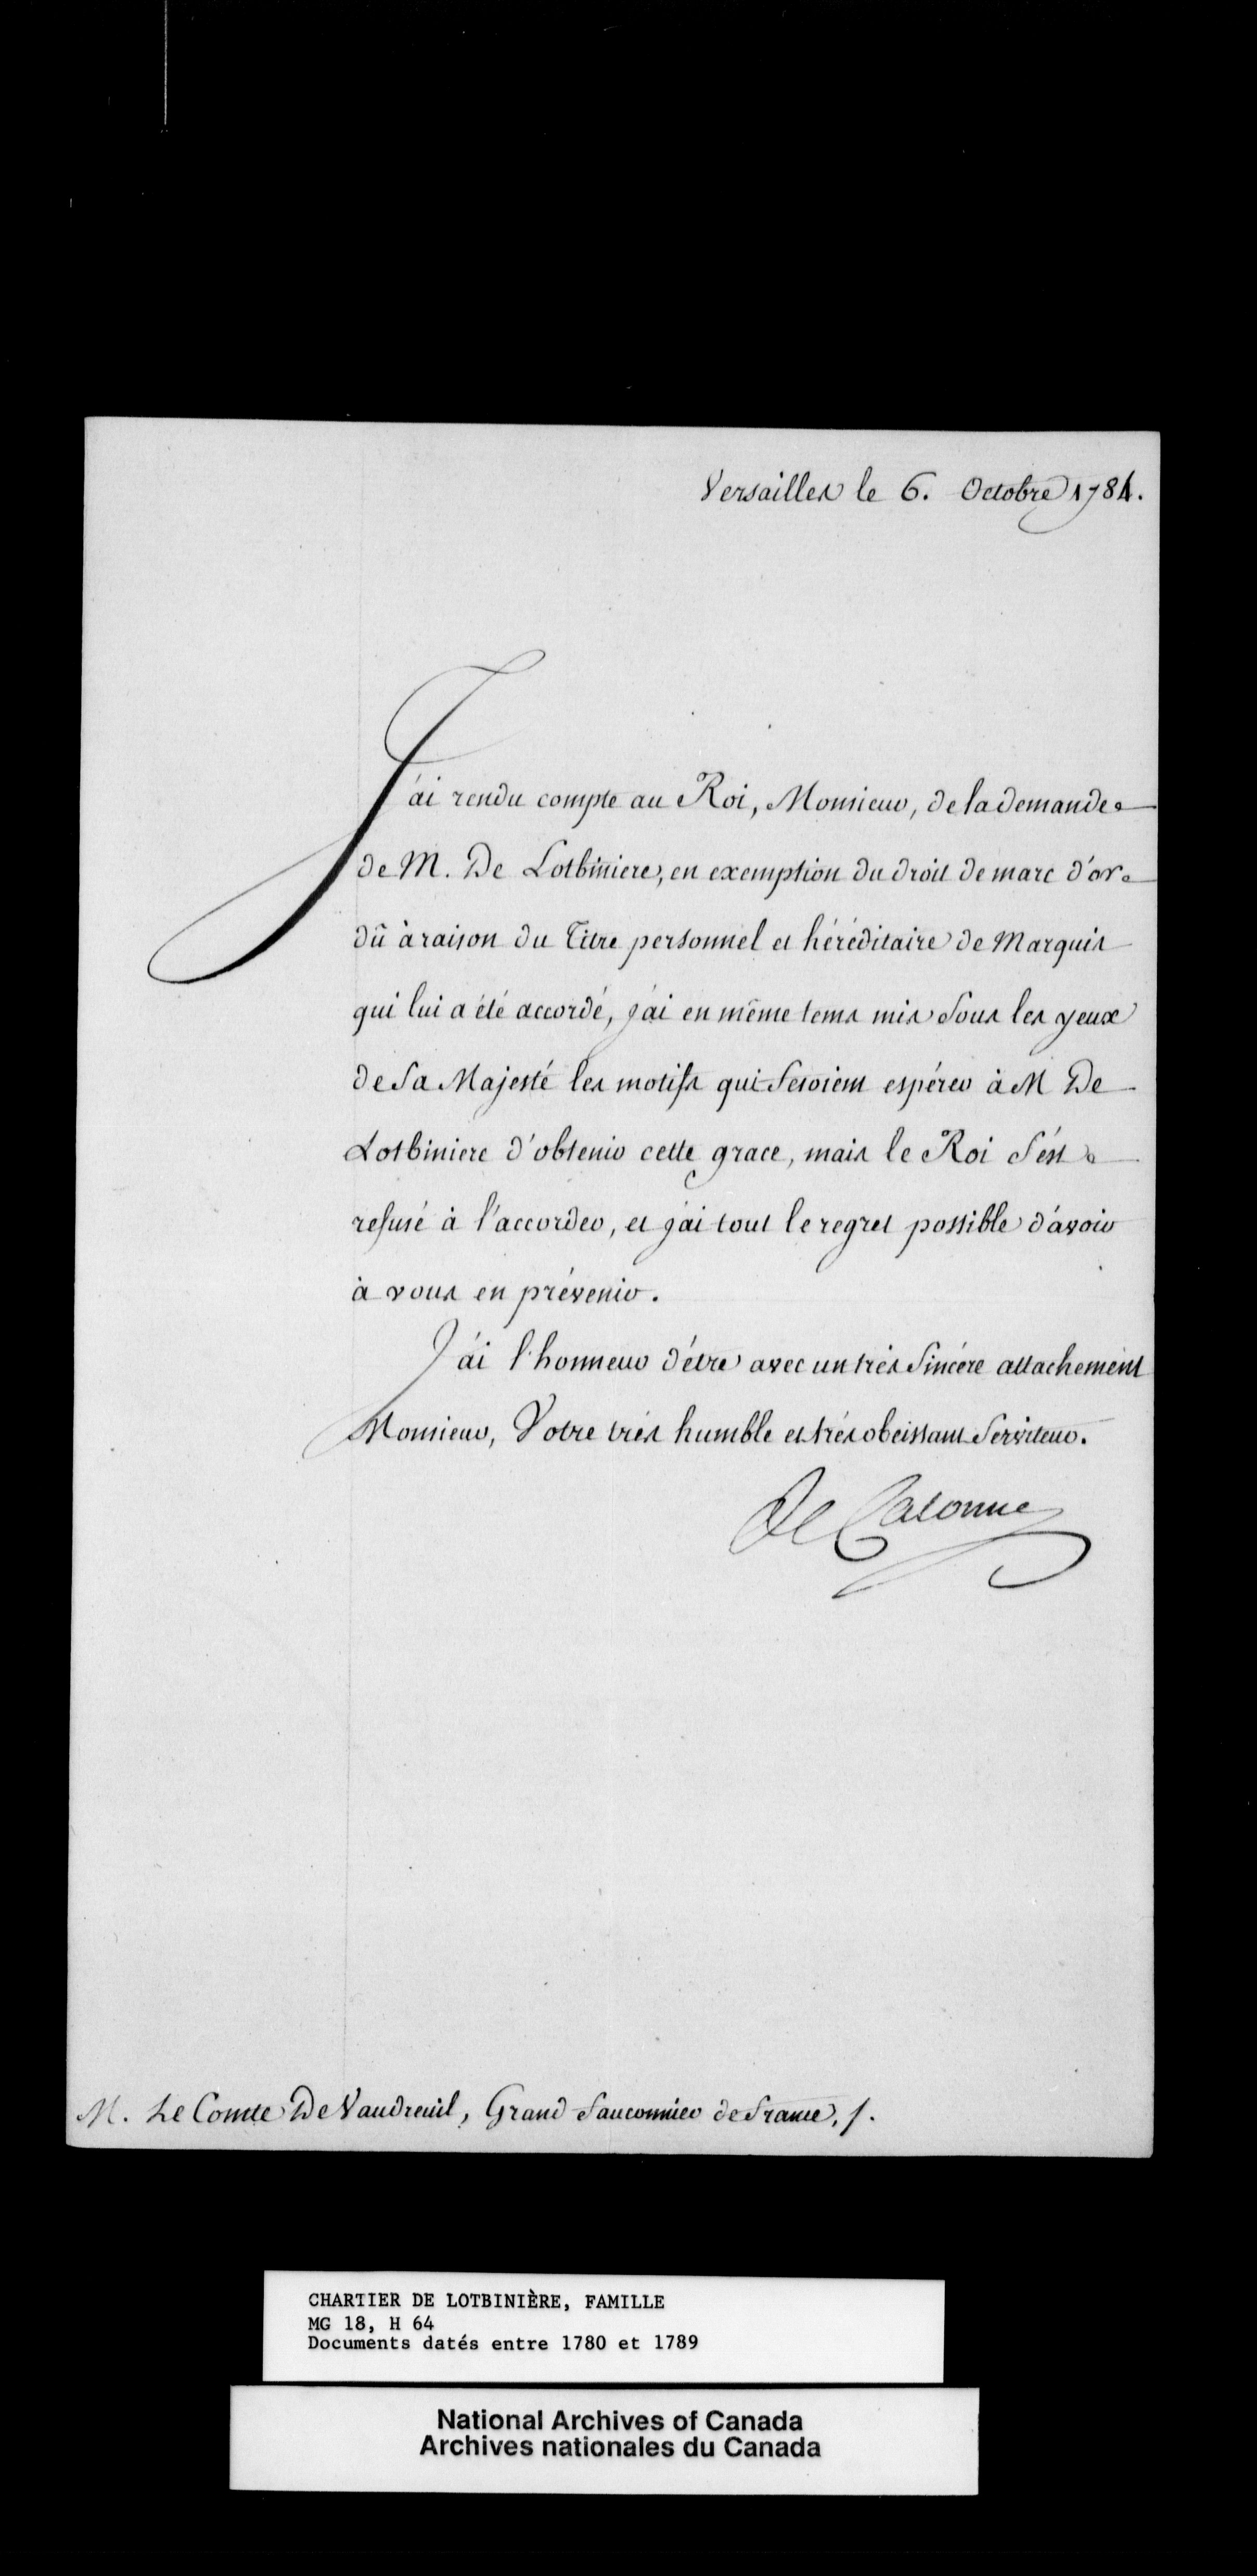 Versailles le 6. Octobre 1784.
J'ai rendu compte au Roi, Monsieur, de la demande
de M. De Lotbiniere, en exemption du droit de marc d'or
dû à raison du Titre personnel et héréditaire de Marquis
qui lui a été accordé, j'ai en même tems mis sous les yeux
de Sa Majesté les motifs qui fesoient espérer à M De
Lotbiniere d'obtenir cette grace, mais le Roi s'est
refusé à l'accorder, et j'ai tout le regret possible d'avoir
à vous en prévenir.
J'ai l'honneur d'être avec un très sincére attachement
Monsieur, Votre très humble et très obeissant Serviteur.
De Calonne
M. Le Comte De Vaudreuil, Grand fauconnier de france,
CHARTIER DE LOTBINIÈRE, FAMILLE
MG 18, H 64
Documents datés entre 1780 et 1789
National Archives of Canada
Archives nationales du Canada